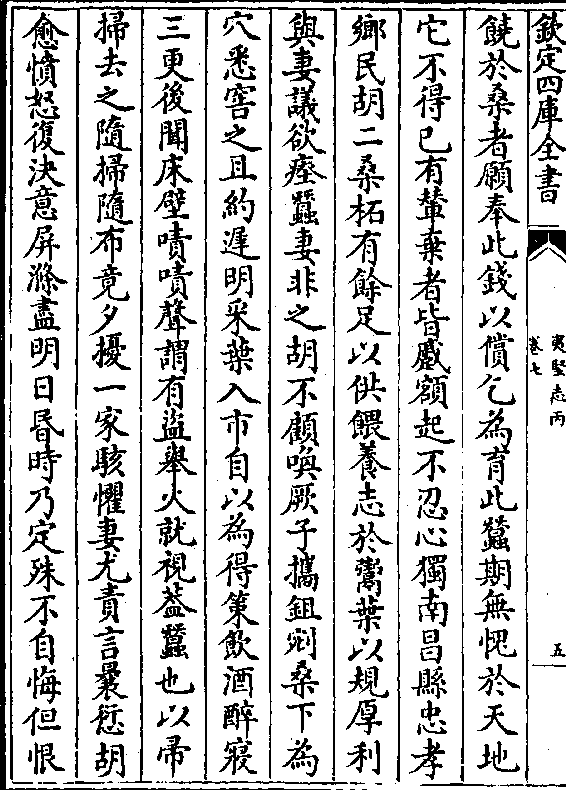 欽定四庫全書
夷堅志丙
卷七
五
饒於桑者願奉此錢以償乞為育此蠶期無愧於天地
它不得已有輦棄者皆蹙額起不忍心獨南昌縣忠孝
鄉民胡二桑柘有餘足以供餵養志於鬻葉以規厚利
與妻議欲瘞蠶妻非之胡不顧喚厥子攜鉏剜桑下為
穴悉窖之且約遲明采葉入市自以為得策飲酒醉寢
三更後聞床壁嘖嘖聲謂有盜舉火就視葢蠶也以帚
掃去之隨掃隨布竟夕擾一家駭懼妻尤責言曩愆胡
愈憤怒復決意屏滌盡明日昏時乃定殊不自悔但恨